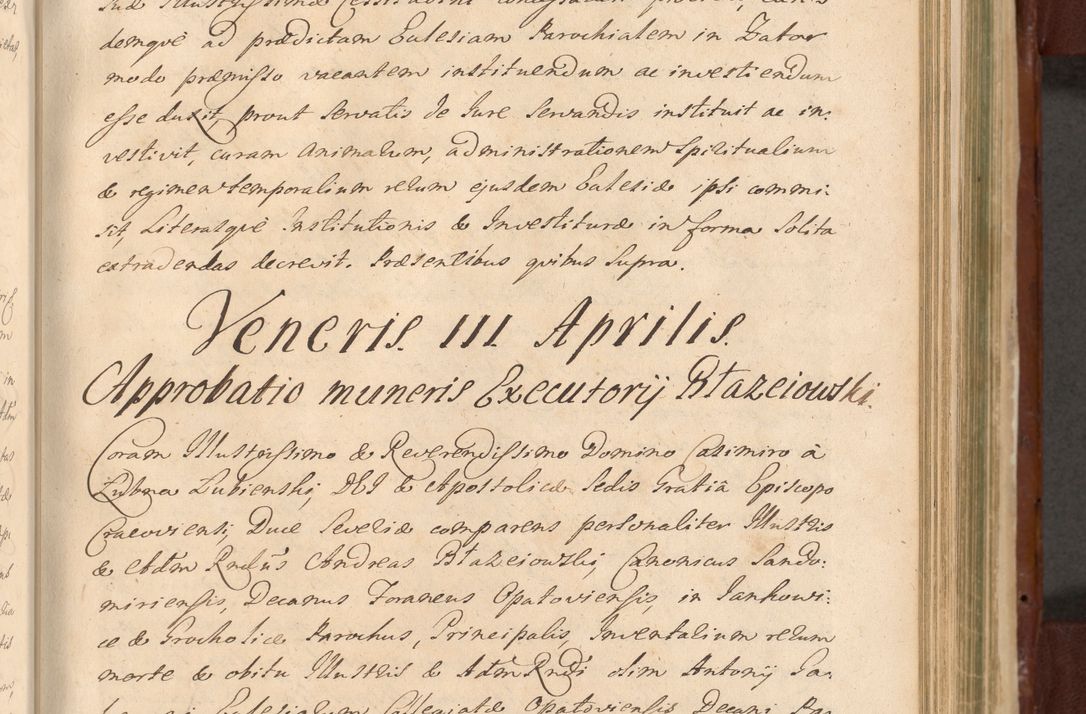 demqve ad prædictam Eulesiam Parochialem in Zator
modo præmisso vacantem instituendum ac investiendum
esse duxit, prout servatis de Iure servandis instituit ac in:
vestivit, curam Animarum, administrationem Spiritualium
& regimen temporalium rerum ejusdem Eulesiæ ipsi commi:
sit, Literasqve Institutionis & Investituræ in forma Solita
extradendas decrevit. Præsentibus qvibus Supra.
Veneris. III. Aprilis.
Approbatio muneris Executorij Błazeiowski.
Coram Illustrissimo & Reverendissimo Domino Casimiro à
Łubna Łubienski, DEI & Apostolicæ Sedis Gratiâ Episcopo
Cracoviensi, Duce Severiæ comparens personaliter Illustris
& Adm Rndus Andreas Błazeiowski, Canonicus Sando:
miriensis, Decanus Foraneus Opatoviensis, in Jankowi:
ce & Grocholice Parochus, Principalis, Inventalium rerum
morte & obitu Illustris & Adm Rndi olim Antonij Za:
Eulesiarum Collegiatæ Opatoviensis Decani